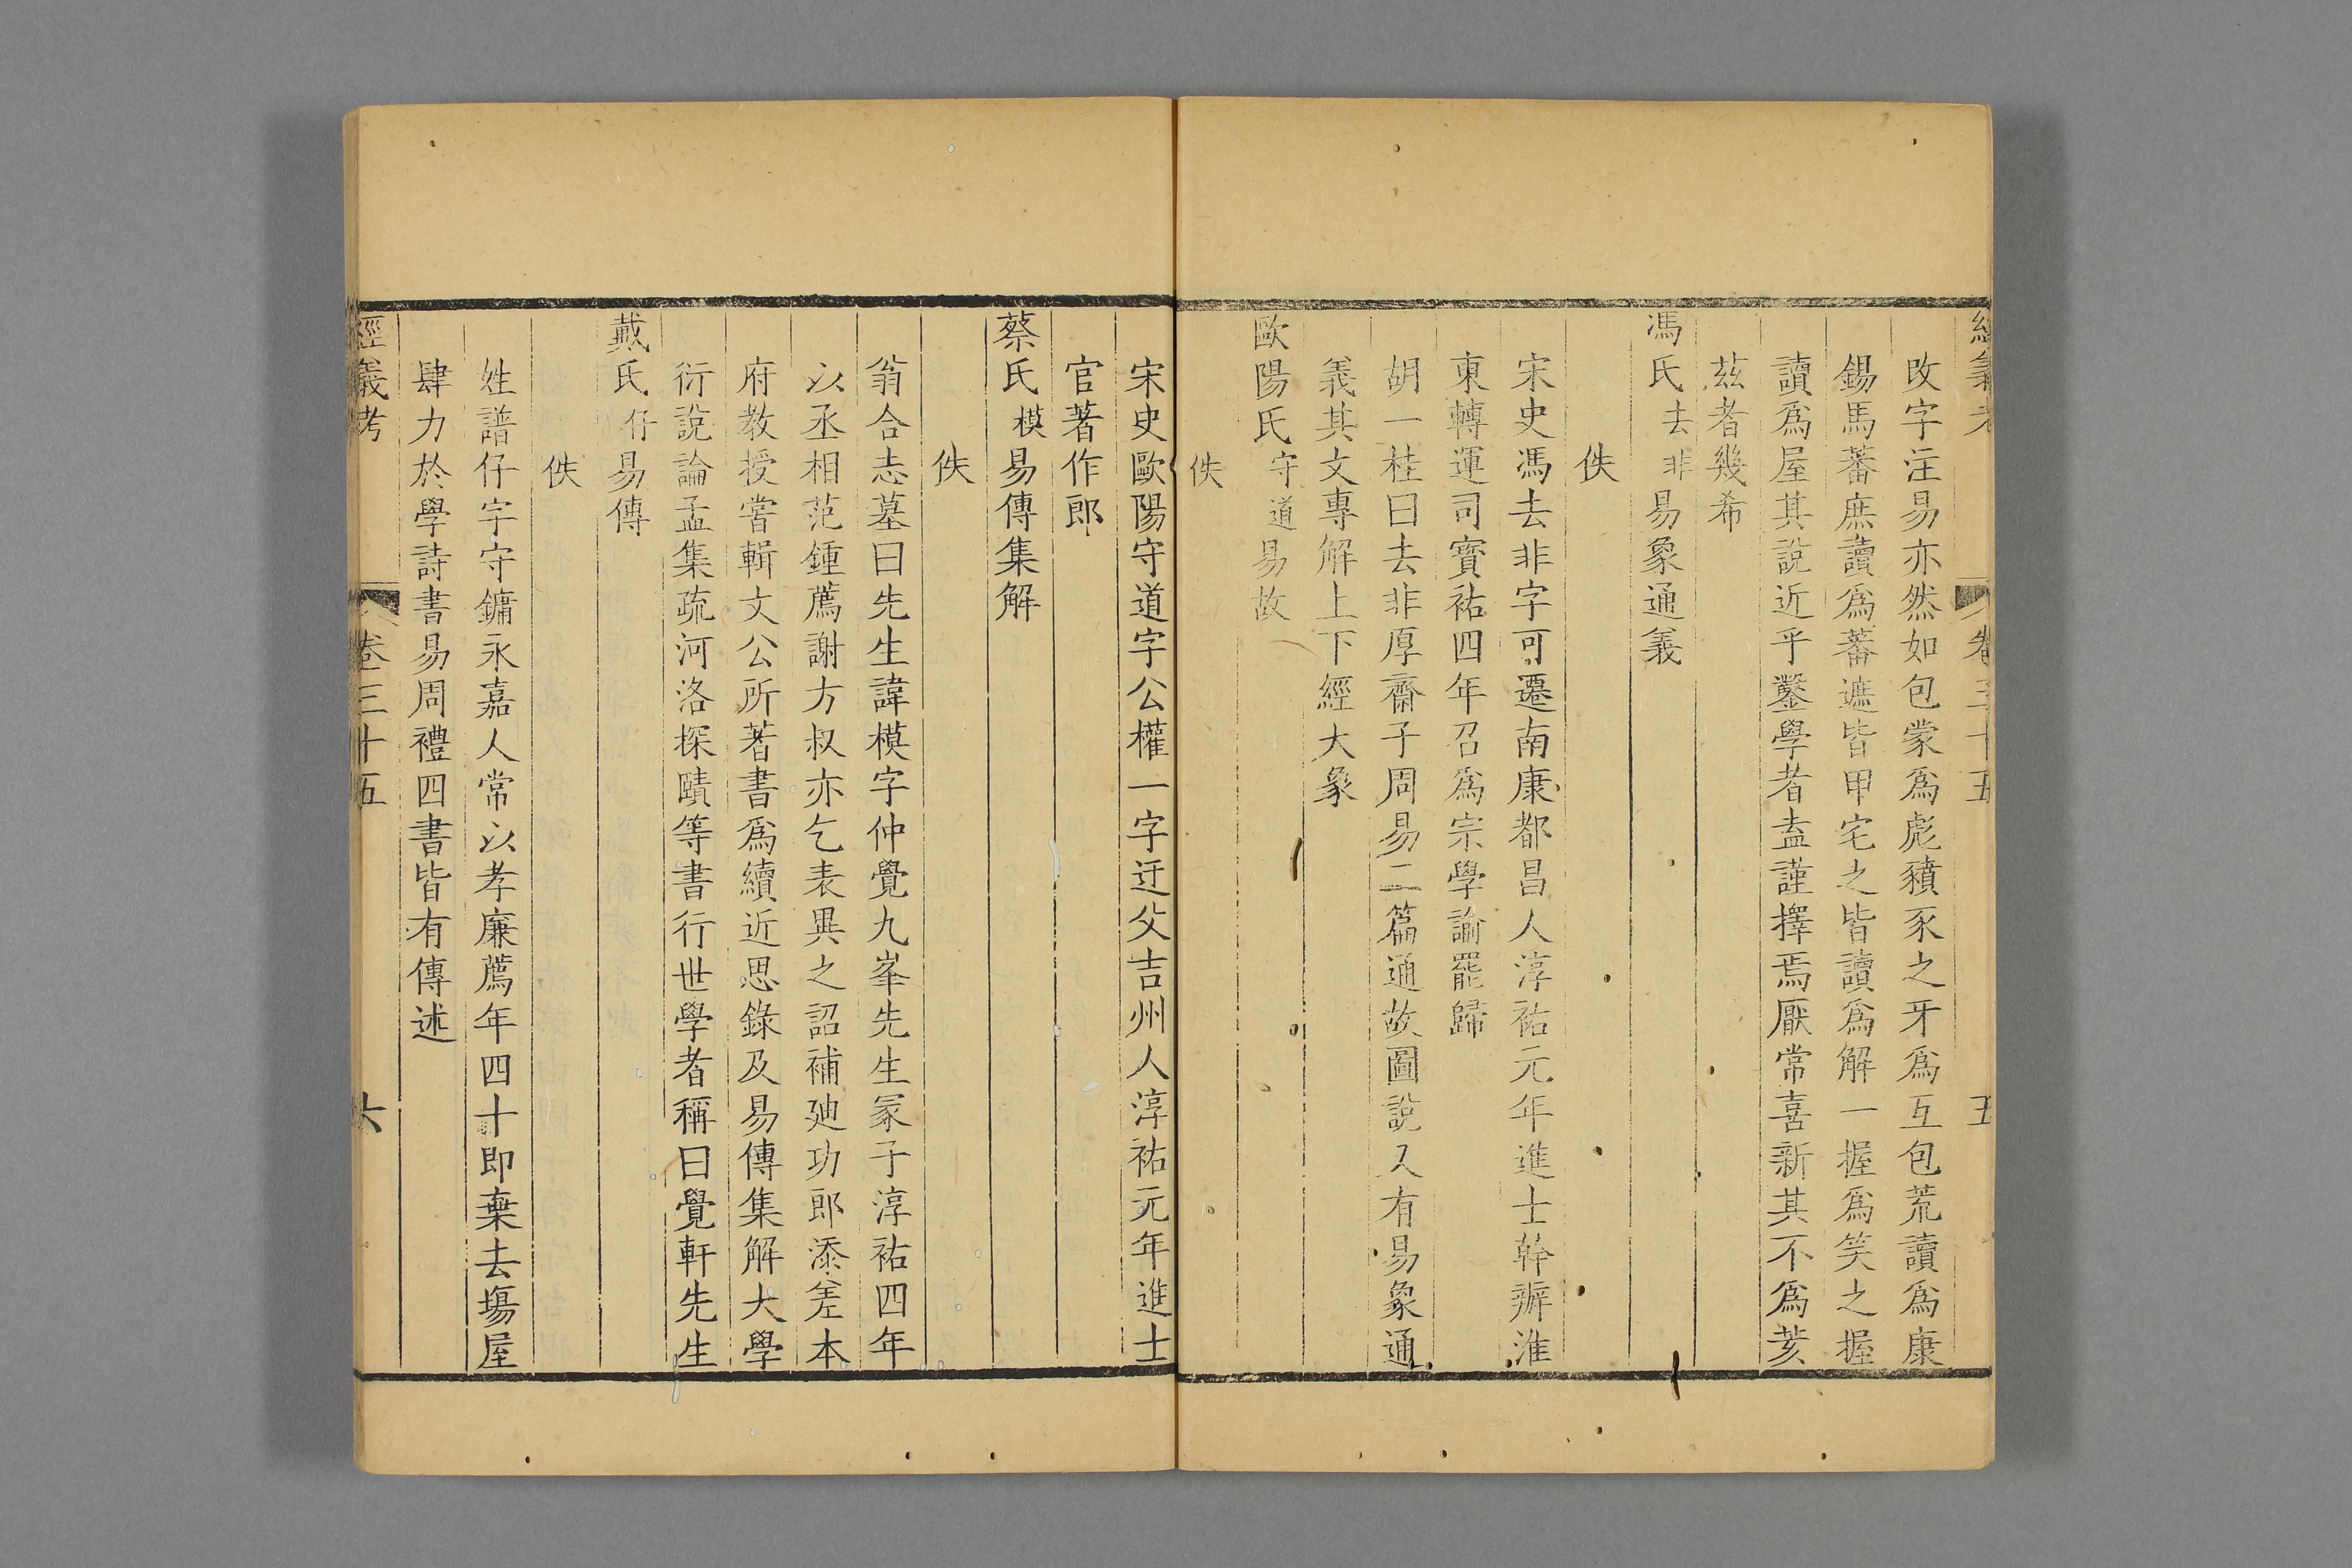 經義考 卷三十五 五
改字注易亦然如包蒙爲彪豶豕之牙爲互包荒讀爲康
錫馬蕃庶讀爲蕃遮皆甲宅之皆讀爲解一握爲笑之握
讀爲屋其說近乎鑿學者盍謹擇焉厭常喜新其不爲荄
茲者幾希
馮氏去非易象通義
佚
宋史馮去非字可遷南康都昌人淳祐元年進士幹辦淮
東轉運司寶祐四年召爲宗學諭罷歸
胡一桂曰去非厚齋子周易二篇通故圖說又有易象通
義其文專解上下經大象
歐陽氏守道易故
佚
宋史歐陽守道字公權一字迂父吉州人淳祐元年進士
官著作郎
蔡氏模易傳集解
佚
翁合志墓曰先生諱模字仲覺九峯先生冢子淳祐四年
以丞相范鍾薦謝方叔亦乞表異之詔補廸功郎添差本
府教授嘗輯文公所著書爲續近思錄及易傳集解大學
衍說論孟集疏河洛探賾等書行世學者稱曰覺軒先生
戴氏仔易傳
佚
姓譜仔字守鏞永嘉人常以孝廉薦年四十即棄去塲屋
肆力於學詩書易周禮四書皆有傳述
經義考 卷三十五 六